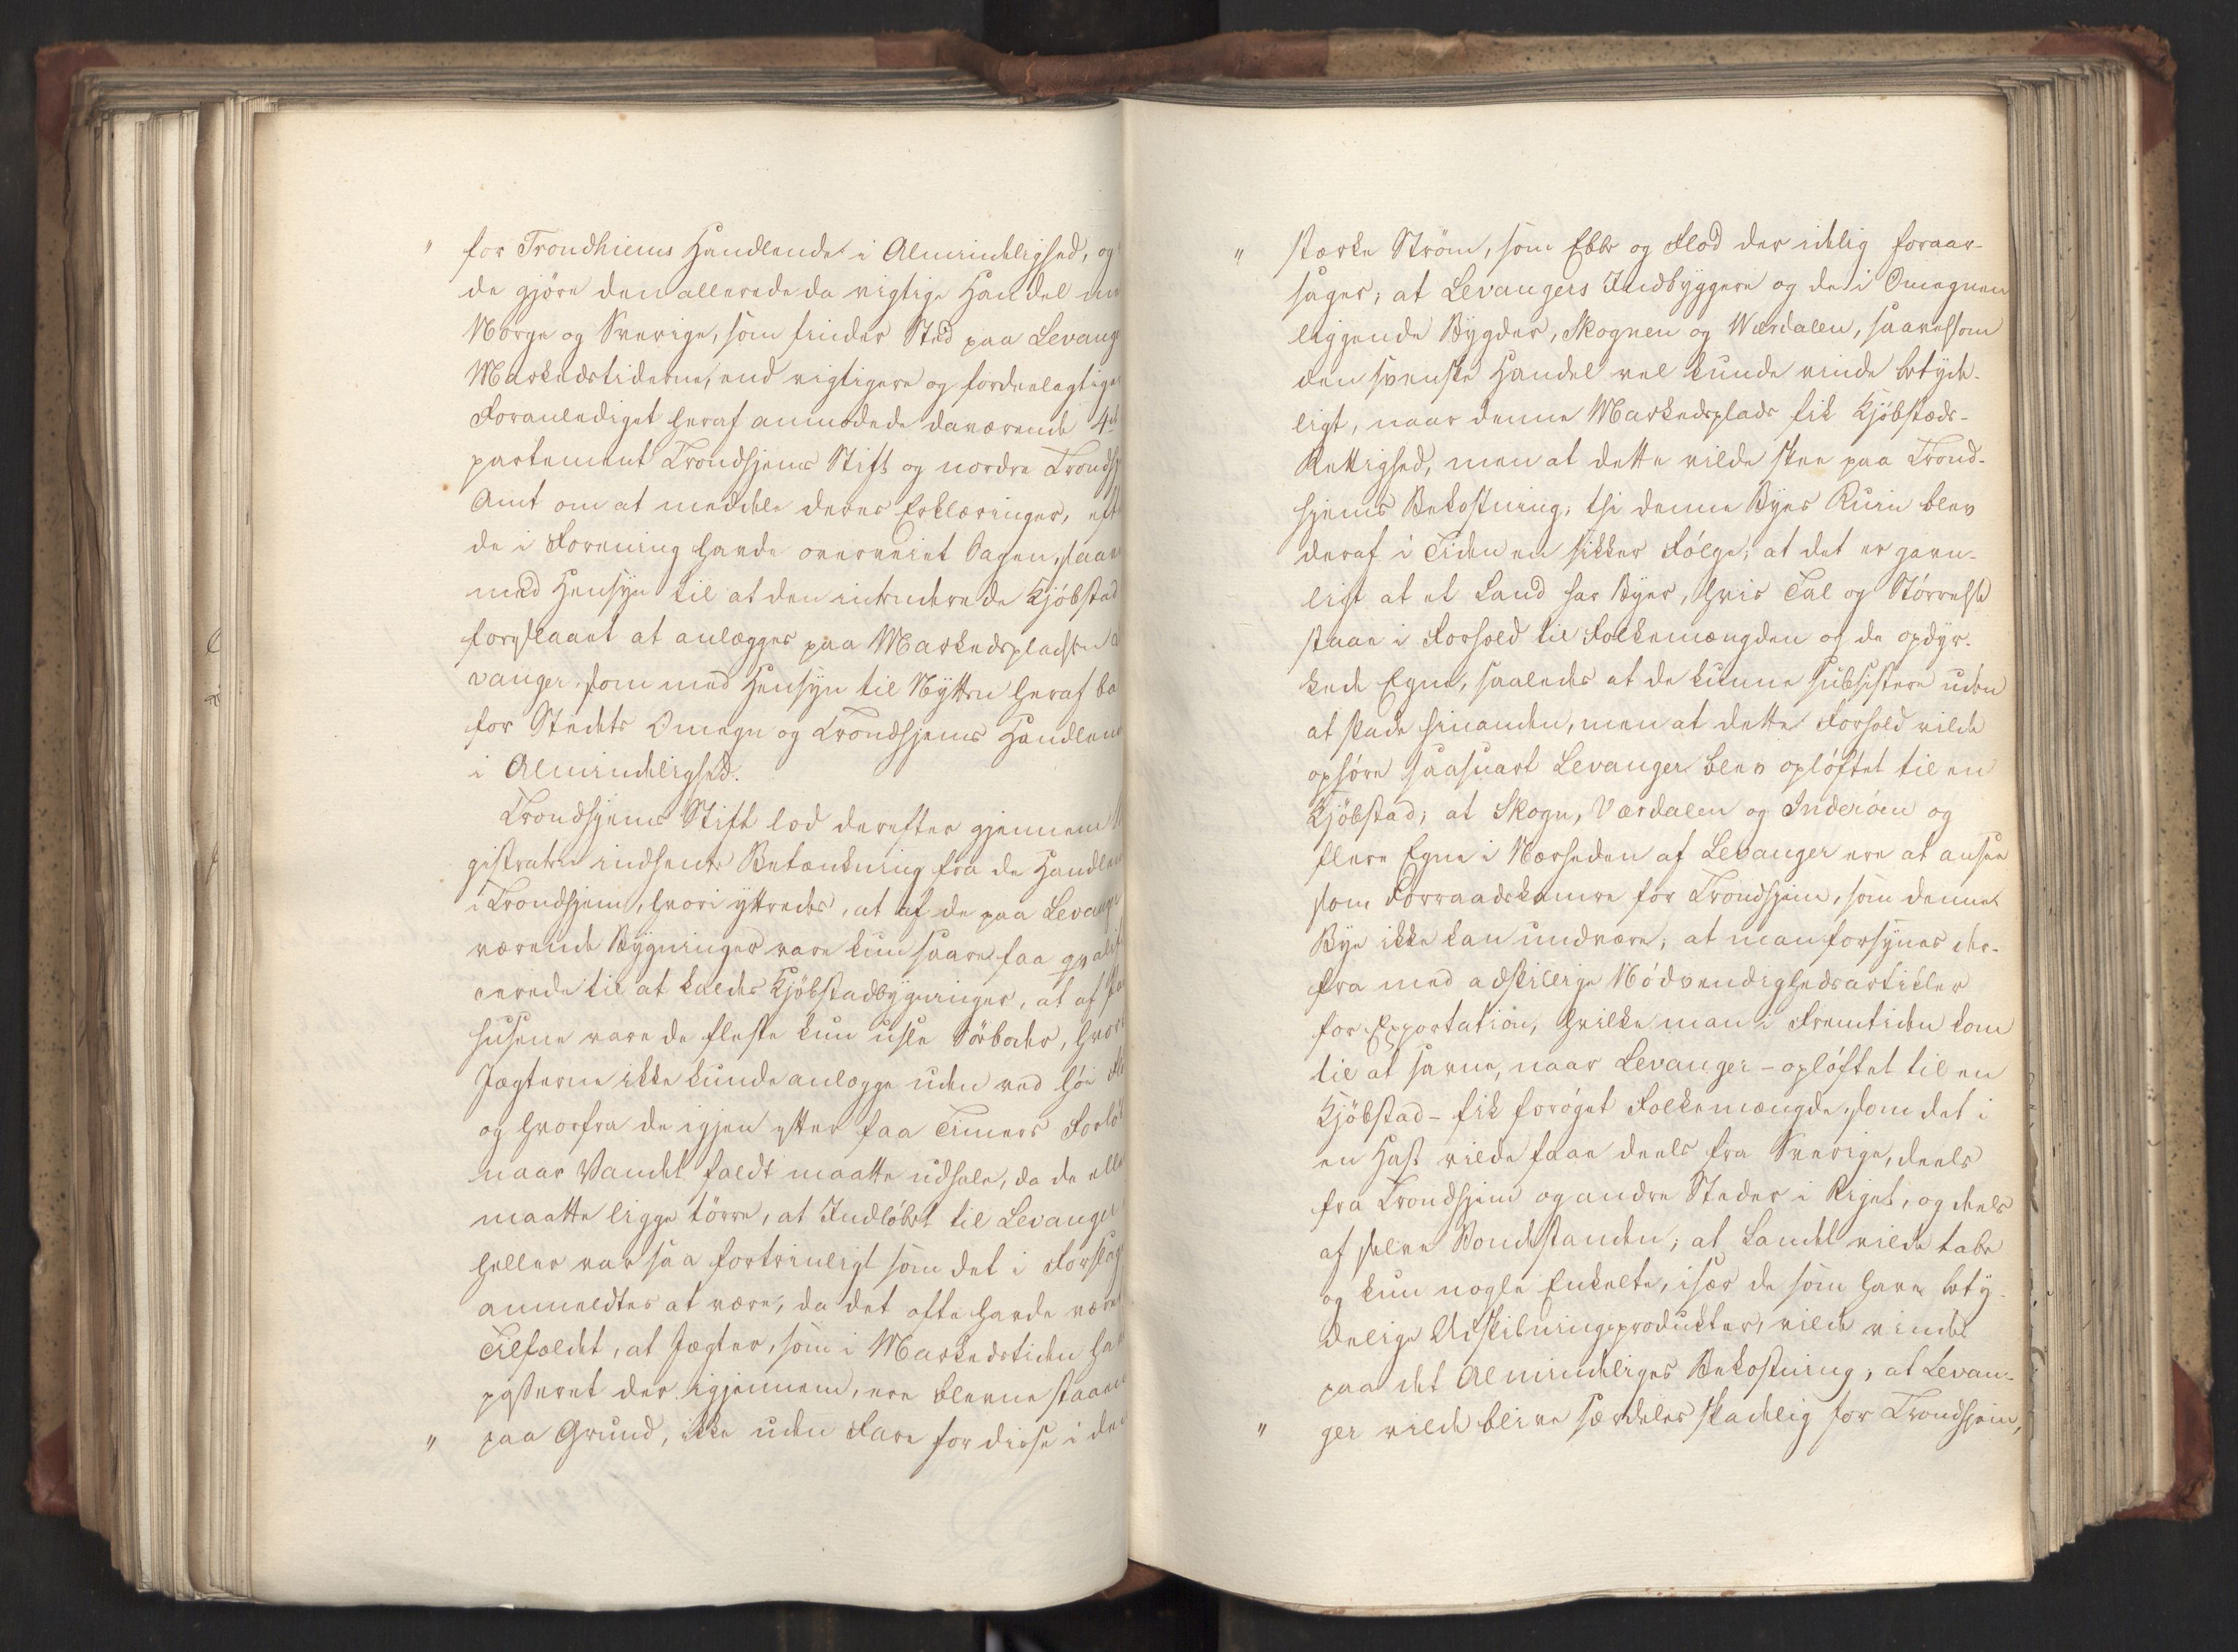 " for Trondhiems Handlende i Almindelighed, og
de gjöre den allerede da vigtige Handel
Norge og Sverige, som finder Sted paa Levang
Markedstiderne, end vigtigere og fordeelagtige
Foranlediget heraf anmodede daværende 4de
partement Trondhjems Stift og nordre Trondhj
Amt om at meddele deres Erklæringer, eft
de i Forening havde overveiet Sagen, saav
med Hensyn til at den intenderede Kjöbstad
foreslaaet at anlægges paa Markedspladsen
vanger, som med Hensyn til Nytten heraf ba
for Stedets Omegn og Trondhjems Handlen
i Almindelighed.
Trondhjems Stift lod derefter gjennem M
gistraten indhente Betænkning fra de Handlen
i Trondhjem, hvori yttredes, at af de paa Levange
værende Bygninger vare kun saare faa qvalifi
cerede til at kaldes Kjöbstadbygninger, at af
husene vare de fleste kun usle Söboder, hvor
Jægterne ikke kunde anlægge uden ved höi Fl
og hvorfra de igjen efter faa Timers Forlöb
naar Vandet faldt maatte udhale, da de elle
maatte ligge törre, at Indlöbet til Levanger
heller var saa fortrinligt som det i Forslag
anmeldtes at være, da det ofte havde været
Tilfældet, at Jægter, som i Markedstiden ha
passeret der igjennem, ere blevne staaen
" paa Grund, ikke uden Fare for disse i den
" stærke Ström, som Ebbe og Flod der idelig foraar-
sager; at Levangers Indbyggere og de i Omegnen
liggende Bygder, Skognen og Værdalen, saavelsom
den svenske Handel vel kunde vinde betyde-
ligt, naar denne Markedsplads fik Kjöbstæds-
Rettighed, men at dette vilde skee paa Trond-
hjems Bekostning; thi denne Byes Ruin blev
deraf i Tiden en sikker Fölge; at det er gavn-
ligt at et Land har Byer, hvis Tal og Störrelse
staae i Forhold til Folkemængden og de opdyr-
kede Egne, saaledes at de kunne subsistere uden
at skade hinanden, men at dette Forhold vilde
ophöre saasnart Levanger blev oplöftet til en
Kjöbstad; at Skogn, Værdalen og Inderöen og
flere Egne i Nærheden af Levanger ere at ansee
som Forraadskamre for Trondhjem, som denne
Bye ikke kan undvære; at man forsynes der-
fra med adskillige Nödvendighedsartikler
for Exportation, hvilke man i Fremtiden kom
til at savne, naar Levanger - oplöftet til en
Kjöbstad - fik foröget Folkemængde, som det i
en Hast vilde faae deels fra Sverige, deels
fra Trondhjem og andre Steder i Riget, og deels
af selve Bondestanden; at Landet vilde tabe
og kun nogle Enkelte, især de som have bety-
delige Udskibningsprodukter, vilde vinde
paa det Almindeliges Bekostning; at Levan-
" ger vilde blive særdeles skadelig for Trondhjem,